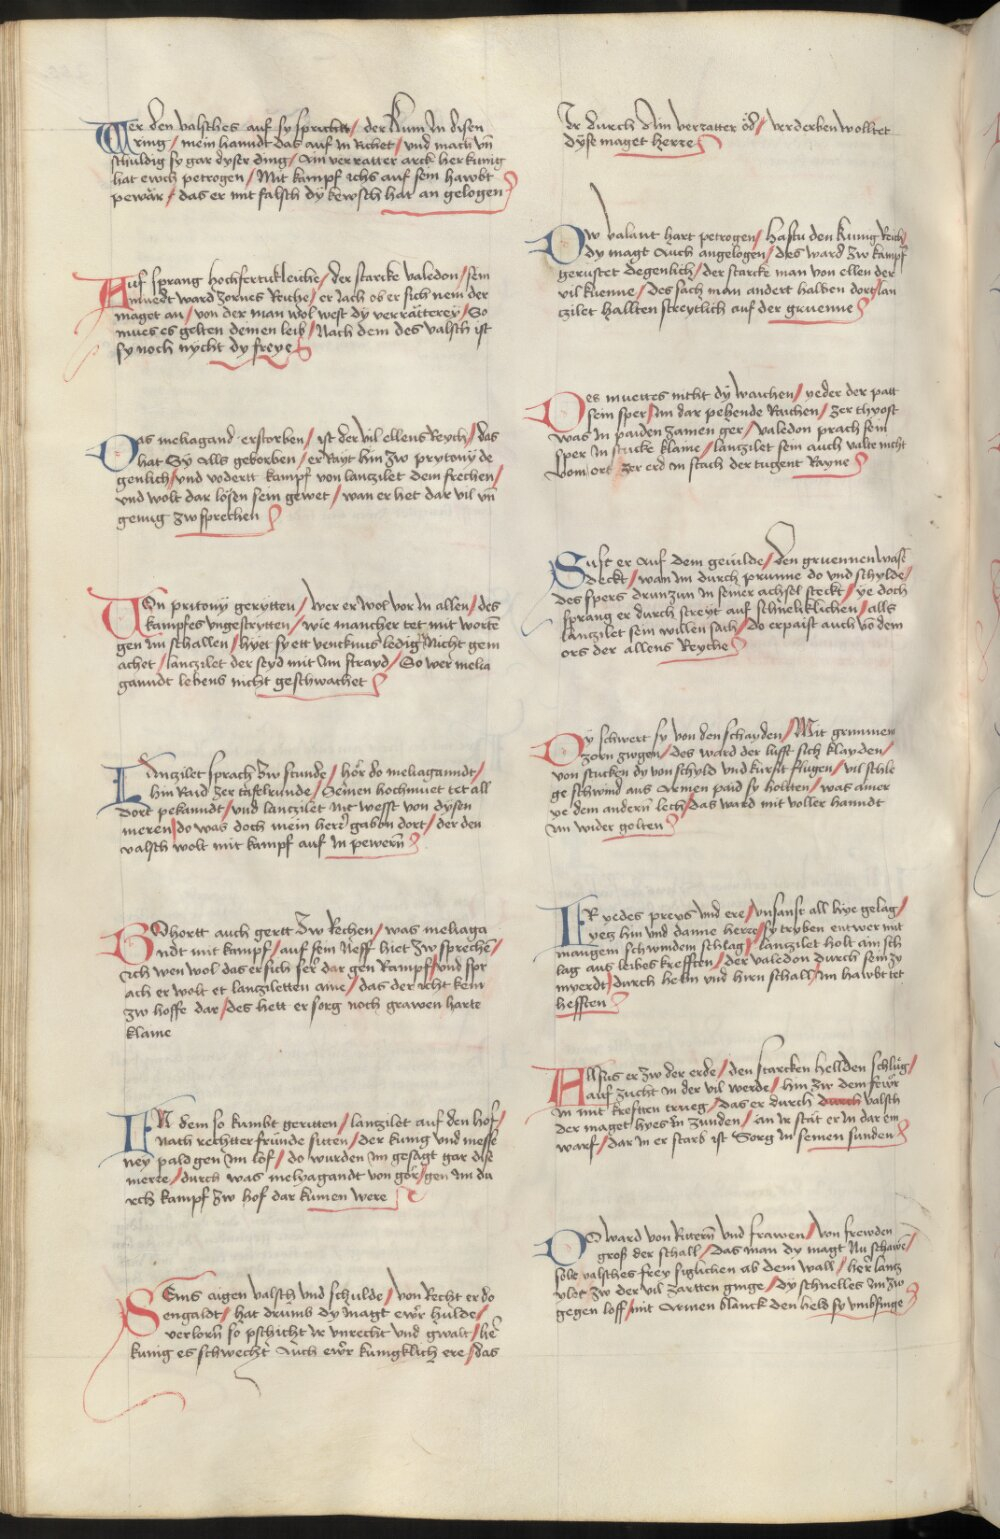 Wer den valsches auf sy spricht / der kum In disen
ring / mein hanndt das auf In richet / und mach vn
schuldig sy gar dyser ding / Ain verratter arck her kunig
hat ewch petrogen / Mit kampf ichs auf sein hawbt
pewär / das er mit falsch dy kewsch hat an gelogen
Auf sprang hochfertickleiche / der starcke valedon / sein
muedt ward zornes Riche / er Jach ob er sich nem der
maget an / von der man wol west dy verrätterey / So
mues es gelten deinen leib / Nach dem des valsch ist
sy noch nycht dy freye
Das meliagand erstorben / ist der vil ellens Reych / das
hat Sy Alls geborben / er Rayt hin zw prytony de
genlich / und vodertt kampf von lanzilet dem frechen /
und wolt dar lösen sein gewet / wan er het dar vil vn
genug zw sprechen
Von pritony gerytten / wer er wol vor In allen / des
kampfes ungestrytten / wie mancher tet mit worten
gen Im schallen / hyet sy ett vencknus ledig Nicht gem
achet / lanzilet der seyd mit Im strayd / So wer melia
ganndt lebens nicht geschwachet
Lanzilet sprach zw stunde / hör do meliaganndt /
hin Raid zer tafelrunde / Seinen hochmuet tet all
dort pekanndt / und lanzilet nit wesst von dysen
meren / do was doch mein herr gabon dort / der den
valsch wolt mit kampf auf In pewern
Ghortt auch gertt zw Rechen / was meliaga
ndt mit kampf / auf sein Neff hiet zw sprechen /
ich wen wol das er sich ser dar gen Rampf / und spr
ach er wolt et lanziletten aine / das der icht kem
zw hoffe dar / des hett er sorg noch grawen harte
klaine
IN dem so kumbt geritten / lanzilet auf den hof /
nach rechtter fründe sitten / der kunig und messe
ney pald gen Im lof / do wurden Im gesagt gar dise
mere / durch was melyagandt von gör / gen Im da
rch kampf zw hof dar kumen were
Seins aigen valsch und schulde / von Recht er do
engaldt / hat drumb dy magt ewr hulde /
verlorn so pschicht Ir unrecht und gwalt / her
kunig es schwecht Auch ewr kunigklich ere / das
Ir durch Ain verratter öd / verderben wolltet
dyse maget herre
Ow valant hart petrogen / hastu den kunig Reich /
dy magt Auch angelogen / des ward zw kampf
gerustet degenlich / der starcke man von ellen der
vil kuenne / des sach man andert halben dort / lan
zilet hallten streytlich auf der gruenne
Des muettes nicht dy waichen / yeder der patt
sein sper / Im dar pehende Raichen / zer thyost
was In paiden zamen ger / valedon prach sein
sper In stucke klaine / lanzilet sein auch valte nicht
vom ort / zer erd In stach der tugent Rayne
Sust er auf dem gevilde / den gruennen wase
deckt / wan Im durch prunne do und schylde /
des spers drunzun In seiner achsel steckt / ye doch
sprang er durch streyt auf schnelliklichen / alls
lanzilet sein willen sach / do erpaist auch vo dem
ors der allens Reyche
Dy schwert sy von den schayden / Mit grimmen
zorn zugen / des ward der lufft sich klayden /
von stucken dy von schyld und kursit flugen / vil schle
ge schwind aus Armen paid sy hollten / was ainer
ye dem andern lech / das ward mit voller hanndt
Im wider golten
IR yedes preys und ere / unsanft all hye gelag /
yetz hin und danne herre / sy tryben entwer mit
mangem schwindem schlag / lanzilet holt ain sch
lag aus leibes krefften / der valedon durch sein zy
mverdt / durch helm und hirn schall / Im hawbt tet
hefften
Allsus er zw der erde / den starcken hellden schlug /
auf zucht In der vil werde / hin zw dem fewr
In mit kreftten trueg / das er durch durch valsch
der maget hyes In zunden / an Ir stat er In dar ein
warf / dar In er starb ist Sorg In seinen sunden
Do ward von Rittern und frawen / von frewden
groß der schall / Das man dy magt Nu schawe /
solt valsches frey sigtichen ab dem wall / her lantz
ylet zw der vil zartten ginge / dy schnelles Im zw
gegen loff / mit Armen blanck den held sy umbfinge